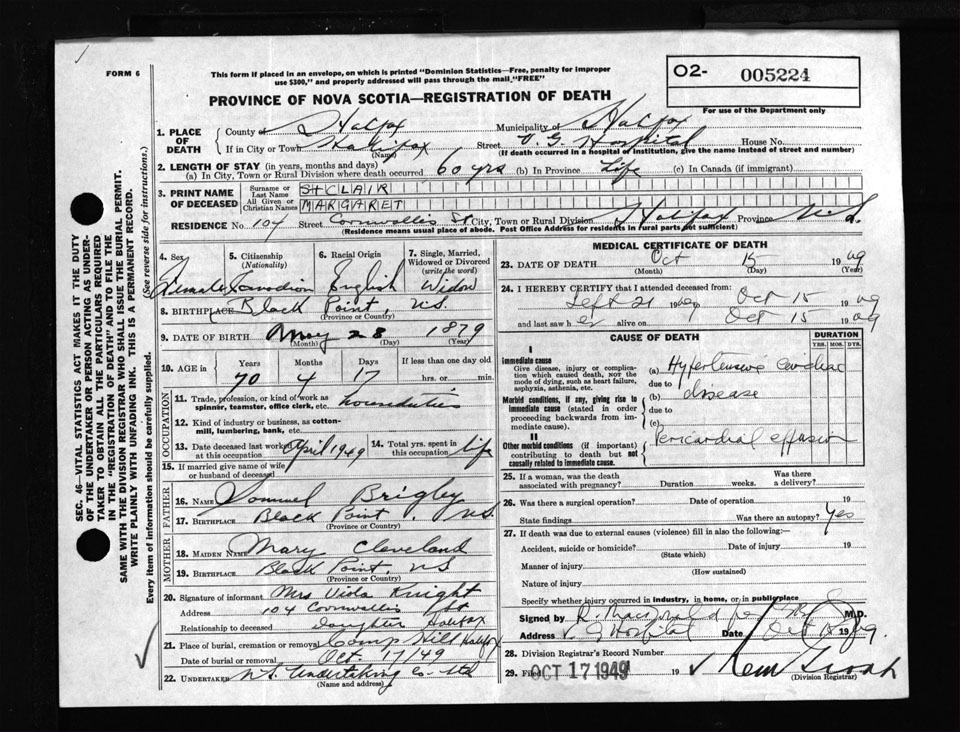 FORM 6
This form if placed in an envelope, on which is printed "Dominion Statistics—Free, penalty for improper
use $300," and properly addressed will pass through the mail "FREE"
O2- 005224
For use of the Department only
PROVINCE OF NOVA SCOTIA—REGISTRATION OF DEATH
1. PLACE OF DEATH
County of Halifax Municipality of Halifax
If in City or Town Halifax Street V. G. Hospital House No.
(Name) (If death occurred in a hospital or institution, give the name instead of street and number)
2. LENGTH OF STAY (in years, months and days)
(a) In City, Town or Rural Division where death occurred 60 yrs (b) In Province Life (c) In Canada (if immigrant)
3. PRINT NAME OF DECEASED
Surname or Last Name ST CLAIR
All Given or Christian Names MARGARET
RESIDENCE No. 104 Street Cornwallis St City, Town or Rural Division Halifax Province N.S.
(Residence means usual place of abode. Post Office Address for residents in rural parts not sufficient)
4. Sex 5. Citizenship (Nationality) 6. Racial Origin 7. Single, Married, Widowed or Divorced (write the word)
Female Canadian English Widow
8. BIRTHPLACE Black Point, N.S.
(Province or Country)
9. DATE OF BIRTH May 28 1879
(Month) (Day) (Year)
10. AGE Years Months Days If less than one day old
70 4 17 hrs. or min.
OCCUPATION
11. Trade, profession, or kind of work as
spinner, teamster, office clerk, etc. houseduties
12. Kind of industry or business, as cotton-
mill, lumbering, bank, etc.
13. Date deceased last worked at this occupation April 1949 14. Total yrs. spent in this occupation life
15. If married give name of wife
or husband of deceased
FATHER
16. NAME Samuel Brigley
17. BIRTHPLACE Black Point, N.S.
(Province or Country)
MOTHER
18. MAIDEN NAME Mary Cleveland
19. BIRTHPLACE Black Point, N.S
(Province or Country)
20. Signature of informant Mrs Viola Knight
Address 104 Cornwallis
Relationship to deceased Daughter Halifax
21. Place of burial, cremation or removal Camp Hill Halifax
Date of burial or removal Oct. 17/49
22. UNDERTAKER N.S. Undertaking Co. Ltd
(Name and address)
MEDICAL CERTIFICATE OF DEATH
23. DATE OF DEATH Oct 15 1949
(Month) (Day) (Year)
24. I HEREBY CERTIFY that I attended deceased from:
Sept 21 1949 Oct 15 1949
and last saw her alive on Oct 15 1949
CAUSE OF DEATH
DURATION
YRS. MOS. DYS.
I
Immediate cause
Give disease, injury or complication which caused death, NOT the mode of dying, such as heart failure, asphyxia, asthenia, etc.
(a) Hypertensive cardiac
due to
Morbid conditions, if any, giving rise to immediate cause (stated in order proceeding backwards from immediate cause).
(b) disease
due to
(c)
II
Other morbid conditions (if important) contributing to death but not causally related to immediate cause.
Pericardial effusion
25. If a woman, was the death associated with pregnancy? Duration weeks. Was there a delivery?
26. Was there a surgical operation? Date of operation 19
State findings Was there an autopsy? Yes
27. If death was due to external causes (violence) fill in also the following:
Accident, suicide or homicide? Date of injury 19
(State which)
Manner of injury
(How sustained)
Nature of injury
Specify whether injury occurred in industry, in home, or in public place
Signed by R MacDonald M.D.
Address V. G Hospital Date Oct 1949.
28. Division Registrar's Record Number
29. Filed OCT 17 1949 19
(Division Registrar)
SEC. 46—VITAL STATISTICS ACT MAKES IT THE DUTY
OF THE UNDERTAKER OR PERSON ACTING AS UNDER-
TAKER TO OBTAIN ALL THE PARTICULARS REQUIRED
IN THE "REGISTRATION OF DEATH" AND TO FILE THE
SAME WITH THE DIVISION REGISTRAR WHO SHALL ISSUE THE BURIAL PERMIT.
WRITE PLAINLY WITH UNFADING INK. THIS IS A PERMANENT RECORD.
Every item of information should be carefully supplied. (See reverse side for instructions.)